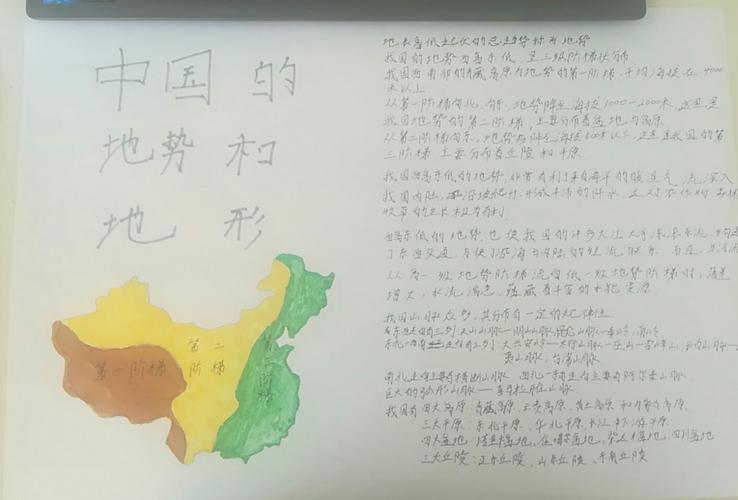 中国的
地势和
地形
第一阶梯
第二
阶梯
第三阶梯
地表高低起伏的总趋势称为地势
我国的地势西高东低,呈三级阶梯状分布
我国西南部的青藏高原为地势的第一阶梯,平均海拔在4000
米以上
从第一阶梯向北、向东,地势降至海拔1000-2000米,这里是
我国地势的第二阶梯,主要分布着盆地与高原
从第二阶梯向东,地势再降至海拔500米以下,这里是我国的第
三阶梯 主要分布着丘陵和平原
我国西高东低的地势,非常有利于来自海洋的暖湿气流深入
我国内陆,沿坡爬升,形成丰沛的降水,这对农作物 森林
牧草的生长极为有利.
西高东低的地势,也使我国的许多大江大河滚滚东流,沟通
了东西交通,方便了沿海与内陆的经济联系 而且,当河流
从高一级地势阶梯流向低一级地势阶梯时,落差
增大,水流湍急,蕴藏着丰富的水能资源
我国山脉众多,其分布有一定的规律性
天山山脉—阴山山脉
太行山脉—巫山—雪峰山
台湾山脉
南北走向主要有横断山脉 西北—东南走向主要有阿尔泰山脉
巨大的弧形山脉——喜马拉雅山脉
我国有四大高原:青藏高原、云贵高原、黄土高原和内蒙古高原.
三大平原:东北平原、华北平原、长江中下游平原
四大盆地:塔里木盆地、准噶尔盆地、柴达木盆地、四川盆地
三大丘陵:辽东丘陵、山东丘陵、东南丘陵